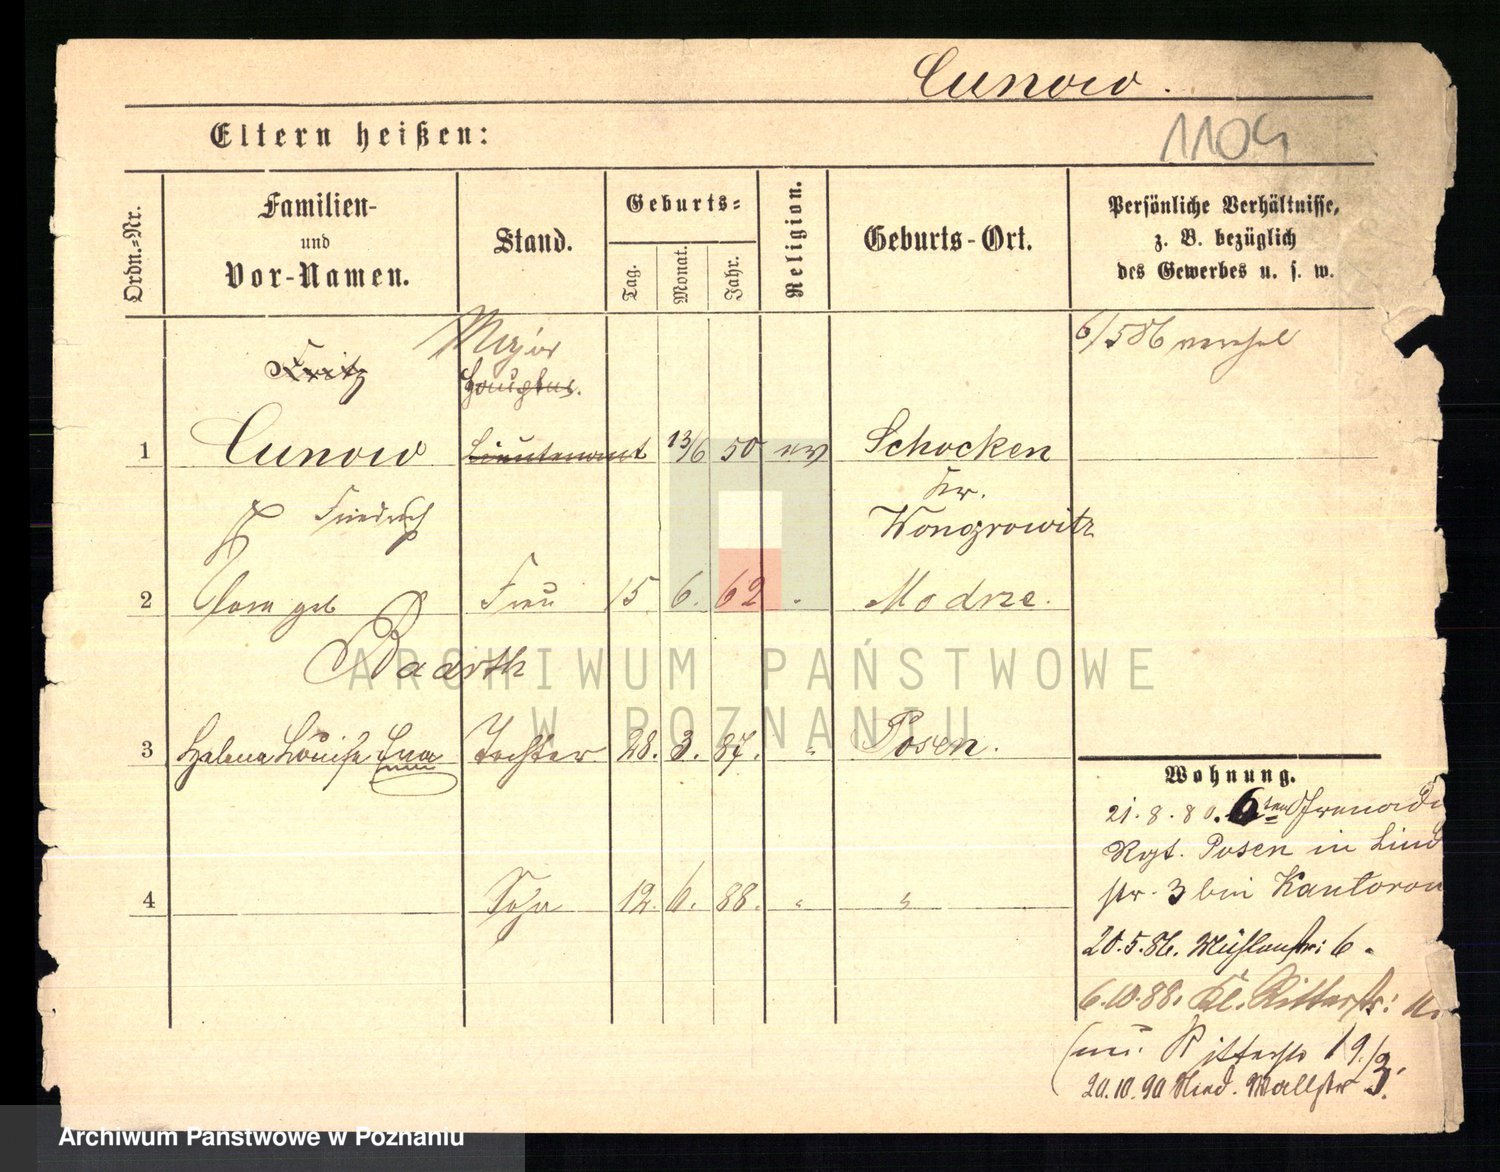 Cunow.
1104
Eltern heißen:
Ordn.=Nr.
Familien-
und
Vor-Namen.
Stand.
Geburts=
Tag.
Monat.
Jahr.
Religion.
Geburts-Ort.
Persönliche Verhältnisse,
z. B. bezüglich
des Gewerbes u. s. w.
6/5 86
Fritz
Major
Hauptm.
1 Cunow Lieutenant 13/6 50 ev Schocken
Friedrich
Kr.
Wongrowitz
2 geb Frau 15. 6. 62 " Modrze.
Baarth
3 Helene Louise Eva Tochter 28. 3. 87. " Posen.
4 Sohn 12. 6. 88. " "
Wohnung.
21. 8. 80. 6ten
Rgt. Posen in Lind
str. 3 bei Kantorow
20. 5. 86. Mühlenstr: 6.
6.10.88. Kl. Ritterstr:
Ritterstr 19/3.
20.10.90 Nied. Wallstr 3.
ARCHIWUM PAŃSTWOWE
W POZNANIU
Archiwum Państwowe w Poznaniu